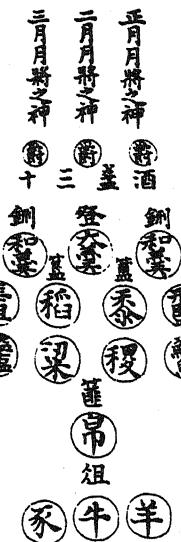 正月月將之神
二月月將之神
三月月將之神
爵 爵 爵
酒盞三十
鉶 登 鉶
和羹 大羹 和羹
黍 稻
稷 粱
篚
帛
俎
羊 牛 豕